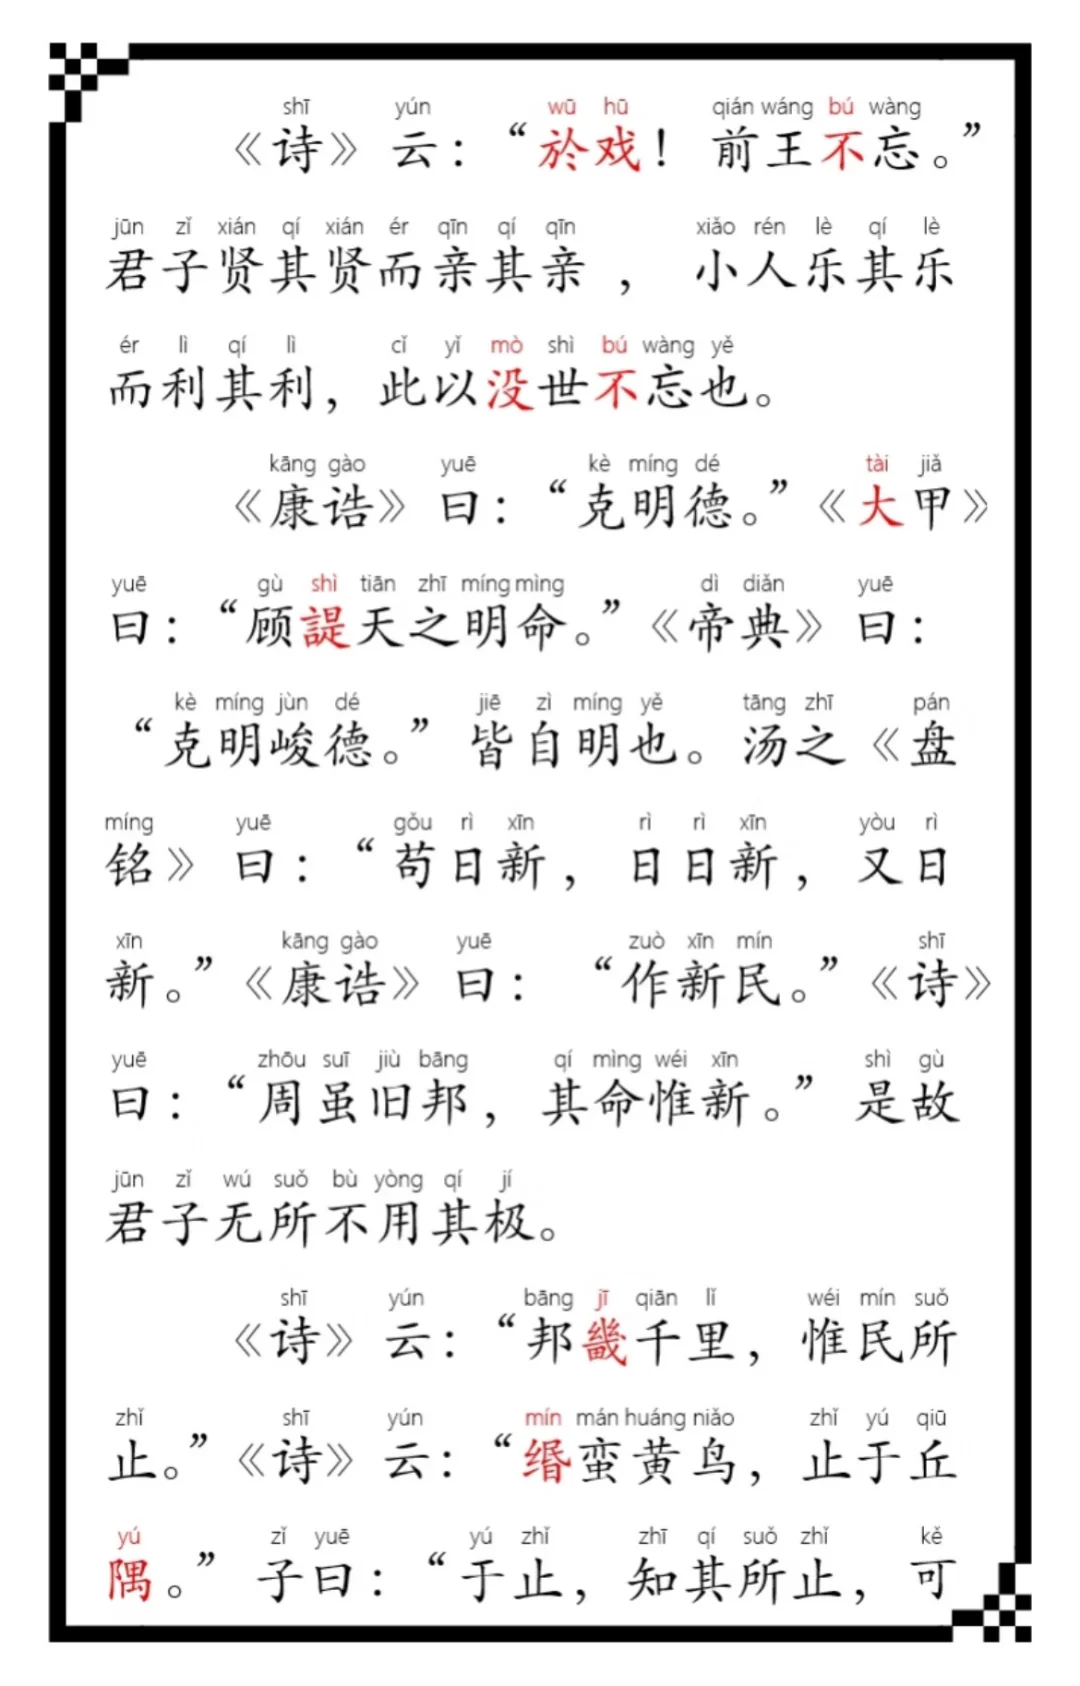 shī yún wū hū qián wáng bú wàng
《诗》云：“於戏！前王不忘。”
jūn zǐ xián qí xián ér qīn qí qīn xiǎo rén lè qí lè
君子贤其贤而亲其亲，小人乐其乐
ér lì qí lì cǐ yǐ mò shì bú wàng yě
而利其利，此以没世不忘也。
kāng gào yuē kè míng dé tài jiǎ
《康诰》曰：“克明德。”《大甲》
yuē gù shì tiān zhī míng mìng dì diǎn yuē
曰：“顾諟天之明命。”《帝典》曰：
kè míng jùn dé jiē zì míng yě tāng zhī pán
“克明峻德。”皆自明也。汤之《盘
míng yuē gǒu rì xīn rì rì xīn yòu rì
铭》曰：“苟日新，日日新，又日
xīn kāng gào yuē zuò xīn mín shī
新。”《康诰》曰：“作新民。”《诗》
yuē zhōu suī jiù bāng qí mìng wéi xīn shì gù
曰：“周虽旧邦，其命惟新。”是故
jūn zǐ wú suǒ bù yòng qí jí
君子无所不用其极。
shī yún bāng jī qiān lǐ wéi mín suǒ
《诗》云：“邦畿千里，惟民所
zhǐ shī yún mín mán huáng niǎo zhǐ yú qiū
止。”《诗》云：“缗蛮黄鸟，止于丘
yú zǐ yuē yú zhǐ zhī qí suǒ zhǐ kě
隅。”子曰：“于止，知其所止，可